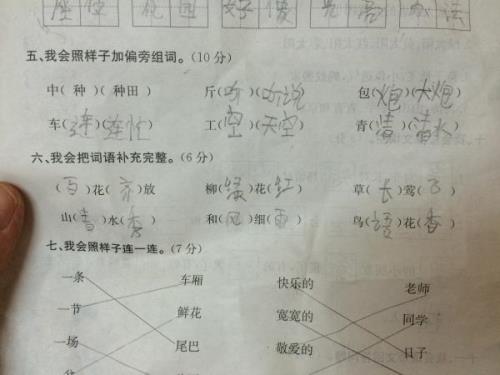 座 位 花 园 办 法
五、我会照样子加偏旁组词。(10分)
中( 种 )( 种田 ) 斤(听)(听说) 包(炮)(大炮)
车(连)(连忙) 工(空)(天空) 青(清)(清水)
六、我会把词语补充完整。(6分)
(百)花(齐)放 柳(绿)花(红) 草(长)莺(飞)
山(青)水(秀) 和(风)细(雨) 鸟(语)花(香)
七、我会照样子连一连。(7分)
一条 车厢 快乐的 老师
一节 鲜花 宽宽的 同学
一场 尾巴 敬爱的 日子